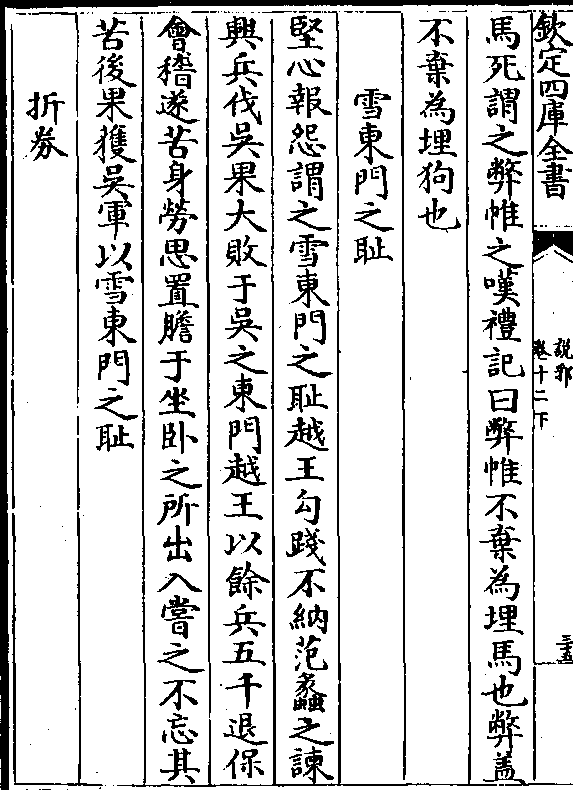 欽定四庫全書
說郛
卷十二下
三五
馬死謂之弊帷之嘆禮記曰弊帷不棄為埋馬也弊盖
不棄為埋狗也
雪東門之耻
堅心報怨謂之雪東門之耻越王勾踐不納范蠡之諫
興兵伐吳果大敗于吳之東門越王以餘兵五千退保
會稽遂苦身勞思置膽于坐卧之所出入嘗之不忘其
苦後果獲吳軍以雪東門之耻
折券